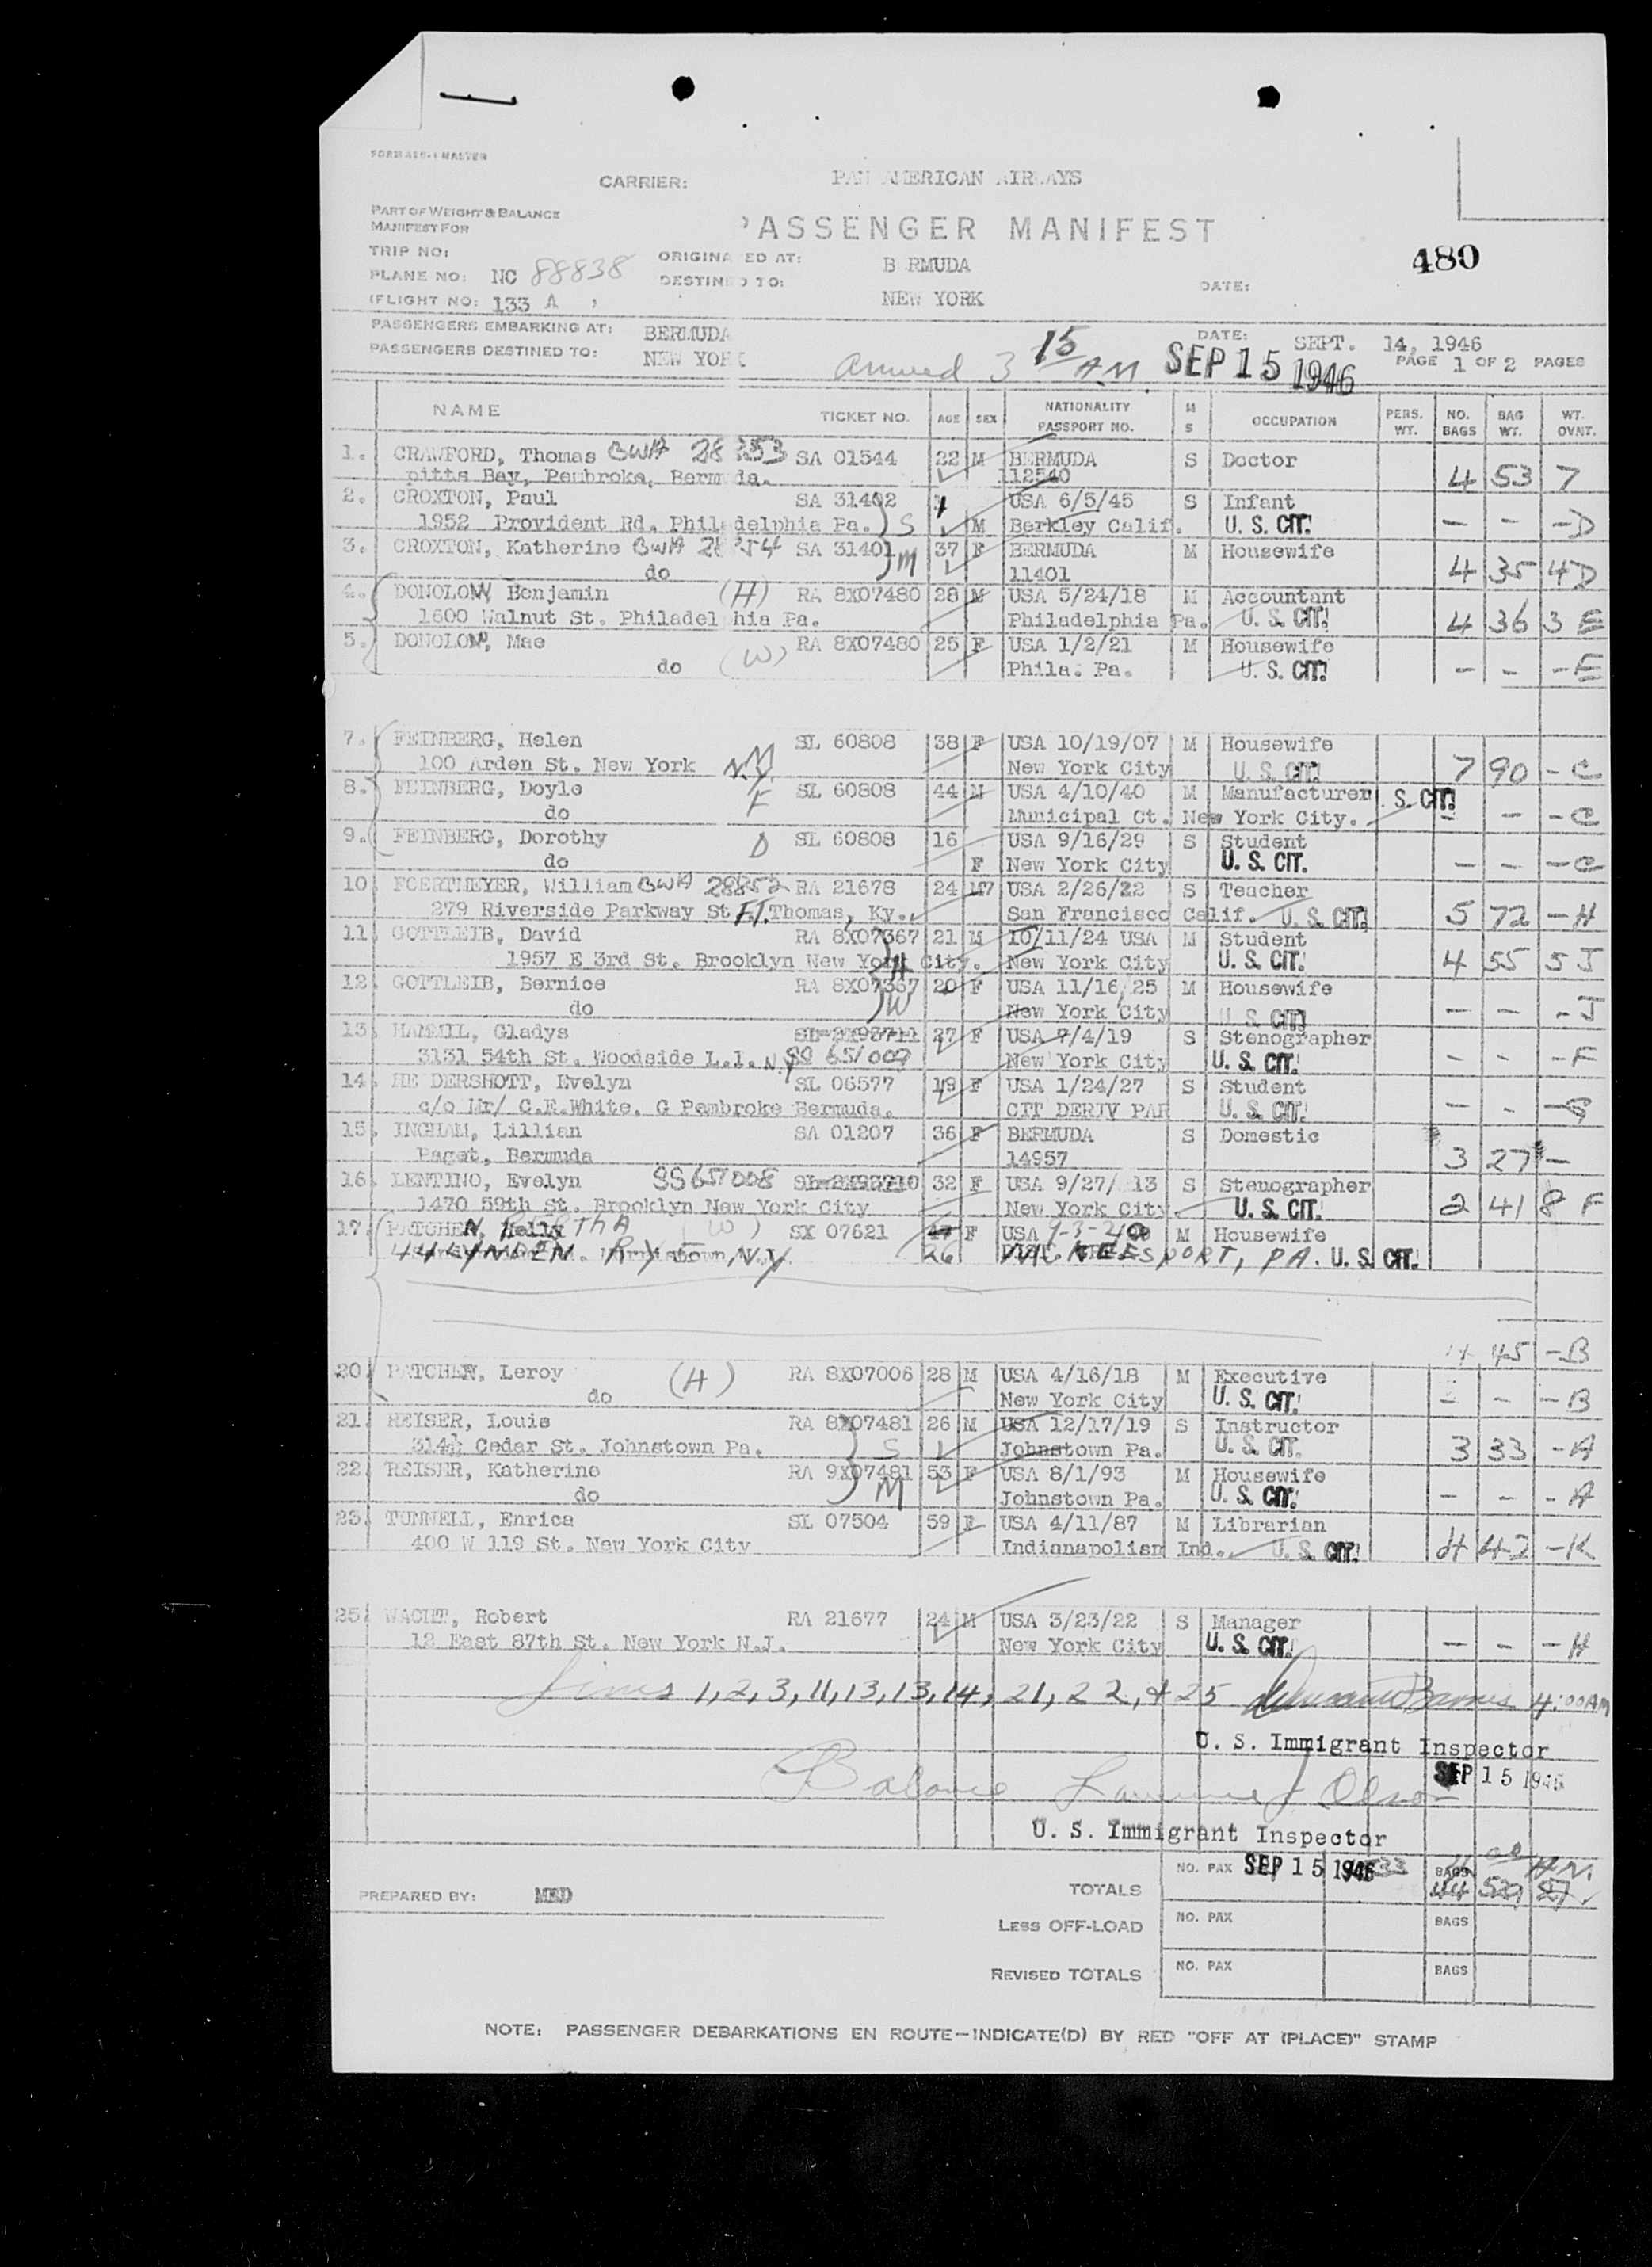 CARRIER: PAN AMERICAN AIRWAYS
PART OF WEIGHT & BALANCE
MANIFEST FOR
PASSENGER MANIFEST
TRIP NO: ORIGINATED AT: BERMUDA 480
PLANE NO: NC 88838 DESTINED TO: NEW YORK DATE:
(FLIGHT NO: 133 A
PASSENGERS EMBARKING AT: BERMUDA DATE: SEPT. 14, 1946
PASSENGERS DESTINED TO: NEW YORK Arrived 3 15/AM. SEP 15 1946 PAGE 1 OF 2 PAGES
NAME TICKET NO. AGE SEX NATIONALITY PASSPORT NO. M S OCCUPATION PERS. WT. NO. BAGS BAG WT. WT. OVNT.
1. CRAWFORD, Thomas BWA SA 01544 22 M BERMUDA S Doctor
pitts Bay, Pembroke, Bermuda. 112540 4 53 7
2. CROXTON, Paul SA 31402 USA 6/5/45 S Infant
1952 Provident Rd. Philadelphia Pa. S M Berkley Calif. U. S. CIT. – – – D
3. CROXTON, Katherine BWA SA 31401 M 37 F BERMUDA M Housewife
do 11401 4 35 4 D
4. DONOLOW, Benjamin (H) RA 8X07480 28 M USA 5/24/18 M Accountant
1600 Walnut St. Philadelphia Pa. Philadelphia Pa. U. S. CIT. 4 36 3 E
5. DONOLOW, Mae (W) RA 8X07480 25 F USA 1/2/21 M Housewife
do Phila. Pa. U. S. CIT. – – – E
7. FEINBERG, Helen SL 60808 38 F USA 10/19/07 M Housewife
100 Arden St. New York N.Y. New York City U. S. CIT. 7 90 – C
8. FEINBERG, Doyle F SL 60808 44 M USA 4/10/40 M Manufacturer S. CIT.
do Municipal Ct. New York City. – – – C
9. FEINBERG, Dorothy D SL 60808 16 USA 9/16/29 S Student
do F New York City U. S. CIT. – – – C
10. FOERTMEYER, William BWA 28852 RA 21678 24 M USA 2/26/22 S Teacher
279 Riverside Parkway St FT. Thomas, Ky. San Francisco Calif. U. S. CIT. 5 72 – H
11. GOTTLEIB, David RA 8X07367 21 M 10/11/24 USA M Student
1957 E 3rd St. Brooklyn New York City. H New York City U. S. CIT. 4 55 5 J
12. GOTTLEIB, Bernice RA 8X07367 20 F USA 11/16/25 M Housewife
do W New York City U. S. CIT. – – – J
13. Gladys 27 F USA 7/4/19 S Stenographer
3131 54th St. Woodside L.I. N.Y. New York City U. S. CIT. – – – F
14. HENDERSHOTT, Evelyn SL 06577 19 F USA 1/24/27 S Student
c/o Mr/ C.R.White. G Pembroke Bermuda. CIT DERIV PAR U. S. CIT. – – –
15. INGHAM, Lillian SA 01207 36 F BERMUDA S Domestic
Paget, Bermuda 14957 3 27 –
16. LENTINO, Evelyn SS 651008 32 F USA 9/27/ 13 S Stenographer
1470 59th St. Brooklyn New York City New York City. U. S. CIT. 2 41 8 F
17. PATCHEN, BERTHA (W) SX 07621 F USA M Housewife
44 LYNDEN. RYE N.Y. 26 MC. KEESPORT, PA. U. S. CIT.
4 45 – B
20. PATCHEN, Leroy (H) RA 8X07006 28 M USA 4/16/18 M Executive
do New York City U. S. CIT. – – – B
21. REISER, Louis RA 8X07481 26 M USA 12/17/19 S Instructor
314½ Cedar St. Johnstown Pa. S Johnstown Pa. U. S. CIT. 3 33 – A
22. REISER, Katherine RA 9X07481 53 F USA 8/1/93 M Housewife
do M Johnstown Pa. U. S. CIT. – – – A
23. TUNNELL, Enrica SL 07504 59 F USA 4/11/87 M Librarian
400 W 119 St. New York City Indianapolism Ind. U. S. CIT. 4 42 – K
25. WACHT, Robert RA 21677 24 M USA 3/23/22 S Manager
12 East 87th St. New York N.J. New York City U. S. CIT. – – – H
Lines 1, 2, 3, 11, 13, 13, 14, 21, 22, & 25 4:00AM
U. S. Immigrant Inspector
SEP 15 1946
Balance Lawrence J Olson
U. S. Immigrant Inspector
TOTALS NO. PAX SEP 15 1946 33 BAGS 44
PREPARED BY: MED
LESS OFF-LOAD NO. PAX BAGS
REVISED TOTALS NO. PAX BAGS
NOTE: PASSENGER DEBARKATIONS EN ROUTE—INDICATE(D) BY RED "OFF AT (PLACE)" STAMP